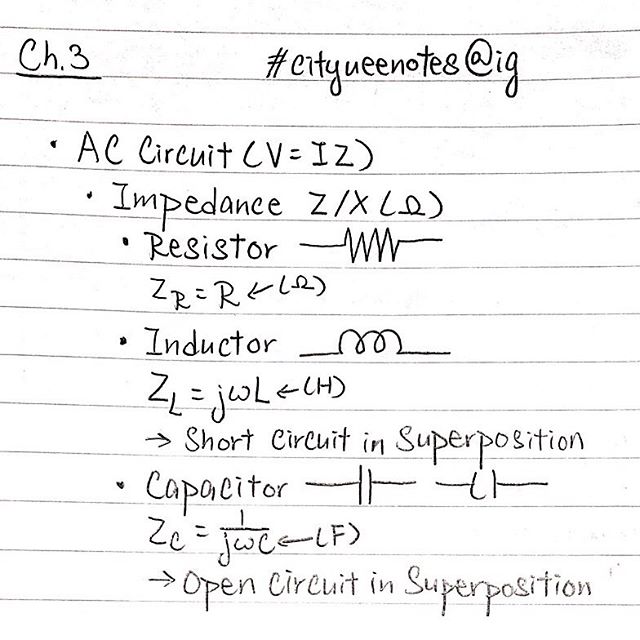 Ch.3
#cityueenotes@ig
• AC Circuit (V=IZ)
• Impedance Z/X (Ω)
• Resistor
Z_R = R ← (Ω)
• Inductor
Z_L = jωL ← (H)
→ Short Circuit in Superposition
• Capacitor
Z_C = 1/jωC ← (F)
→ Open Circuit in Superposition